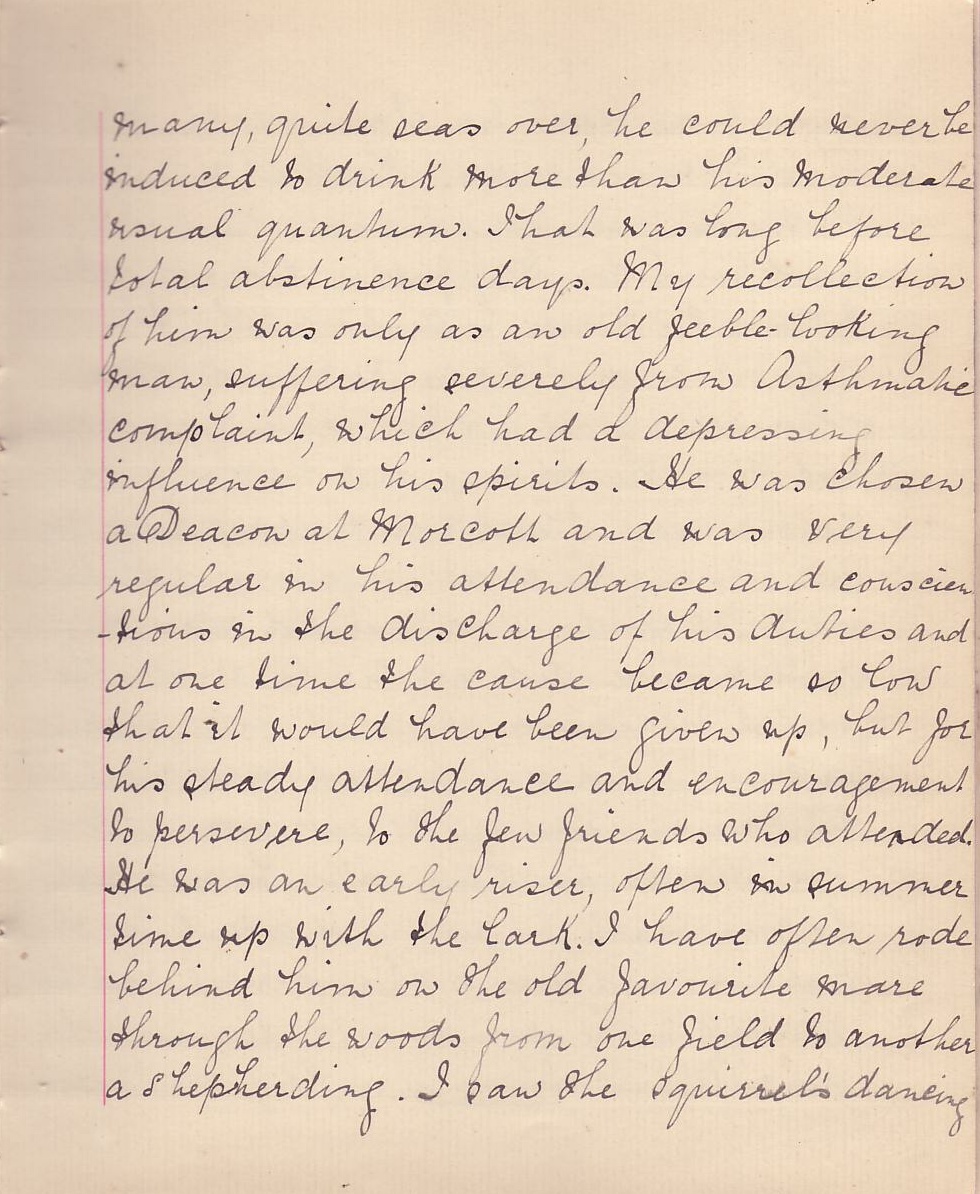 many, quite seas over, he could never be
induced to drink more than his moderate
usual quantum. That was long before
total abstinence days. My recollection
of him was only as an old feeble-looking
man, suffering severely from Asthmatic
complaint, which had a depressing
influence on his spirits. He was chosen
a Deacon at Morcott and was very
regular in his attendance and conscien
-tious in the discharge of his duties and
at one time the cause became so low
that it would have been given up, but for
his steady attendance and encouragement
to persevere, to the few friends who attended.
He was an early riser, often in summer
time up with the lark. I have often rode
behind him on the old favourite mare
through the woods from one field to another
a shepherding. I saw the squirrel's dancing